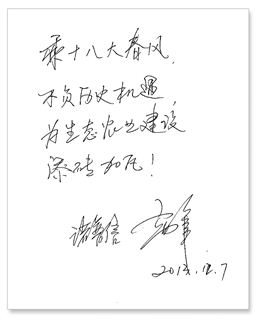 乘十八大春风,
不负历史机遇,
为生态农业建设
添砖加瓦!
诺普信
2012.12.7